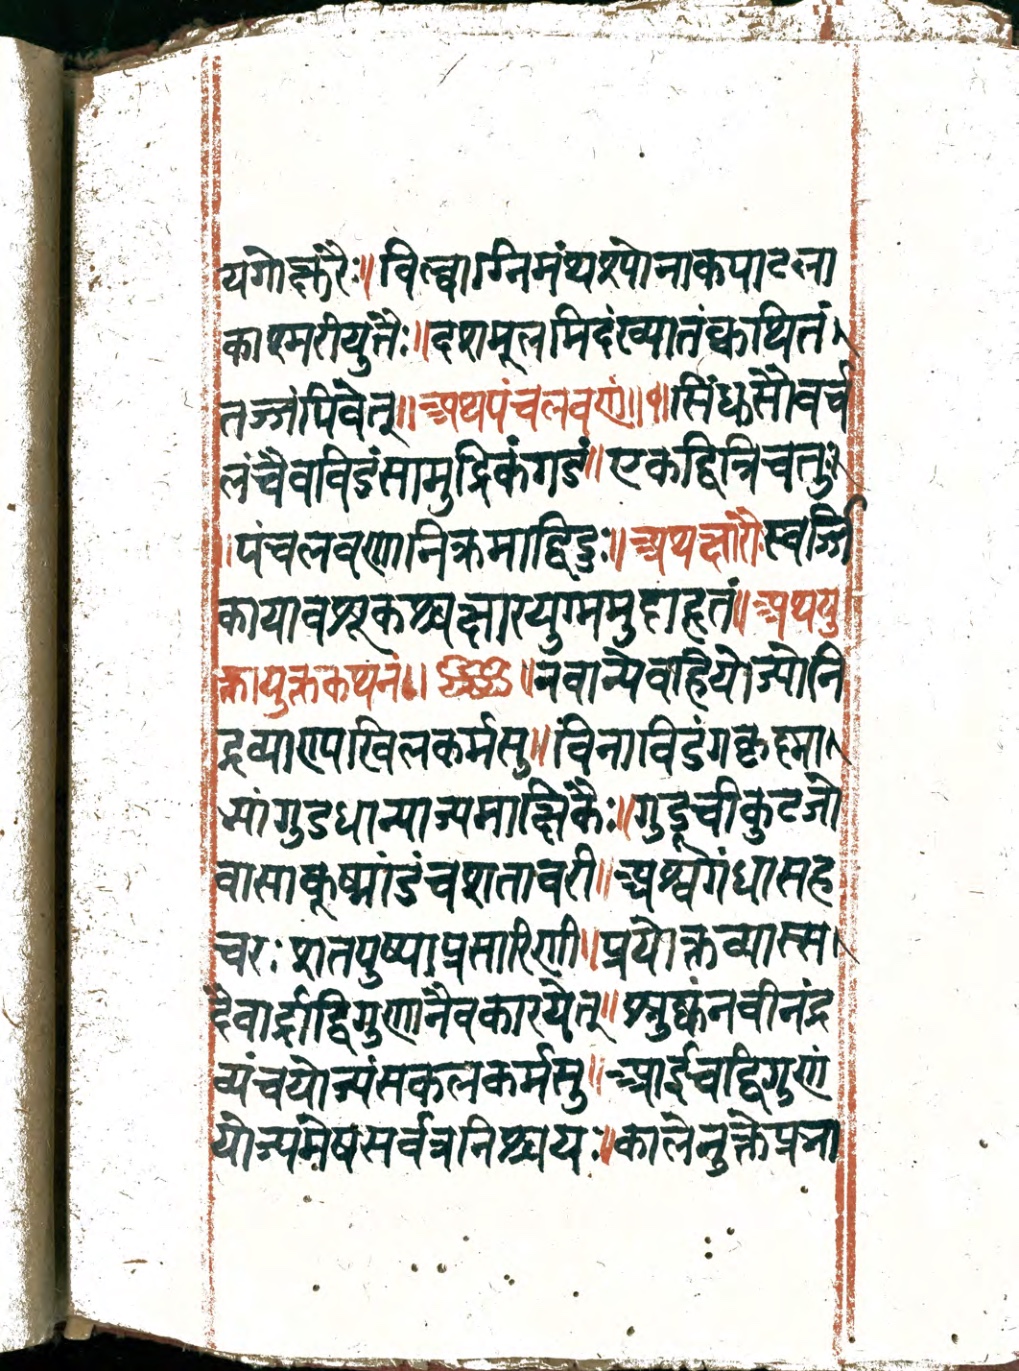 यगोक्षुरैः॥बिल्वाग्निमंथश्योनाकपाटला
काश्मरीयुतैः॥दशमूलमिदंख्यातंक्वथितं
तज्जंपिवेत्॥अथपंचलवणं॥१॥सिंधुसौवर्च
लंचैवविडंसामुद्रिकंगडं॥एकद्वित्रिचतुः
॥पंचलवणानिक्रमाद्विदुः॥अथक्षारौःस्वर्जि
कायावशूकश्चक्षारयुग्ममुदाहृतं॥अथयु
क्तायुक्तकथनं॥॥नवान्येवहियोज्यानि
द्रव्याण्यखिलकर्मसु॥विनाविडंगकृष्मा
भ्यांगुडधान्याज्यमाक्षिकैः॥गुडूचीकुटजो
वासाकूष्मांडंचशतावरी॥अश्वगंधासह
चरःशतपुष्पाप्रसारिणी॥प्रयोक्तव्यास्स
दैवार्द्राद्विगुणानैवकारयेत्॥शुष्कंनवीनंद्र
व्यंचयोज्यंसकलकर्मसु॥आर्द्रंचद्विगुणं
योज्यमेषसर्वत्रनिश्चयः॥कालेनुक्तेप्रभा